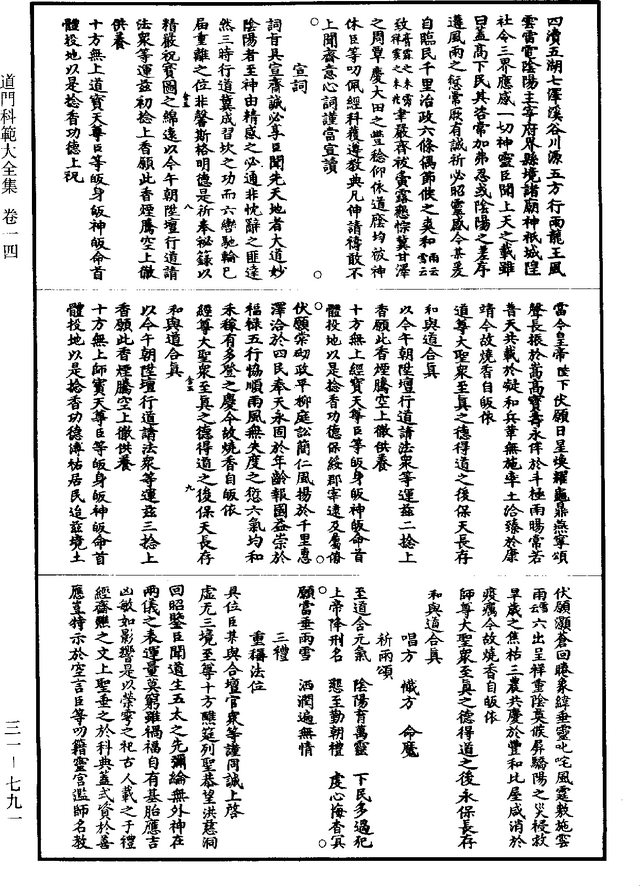 四瀆五湖七澤溪谷川源五方行雨龍王風
雲雷電陰陽主宰府界縣境諸廟神祇城隍
社令三界應感一切神靈臣聞上天之載雖
曰蓋高下民其咨常加弗忍或陰陽之差序
遘風雨之愆常厥有誠祈必昭靈感今某爰
自臨民千里治政六條偶節候之爽和雨云雪云
聿嚴齋祓貴露懇悰冀甘澤
之周覃慶大田之豐稔仰依道廕均被神
休臣等叨佩經科獲遵教典凡伸請禱敢不
上聞齋意心詞謹當宣讀
宣詞
詞旨具宣齋誠必享臣聞先天地者大道妙
陰陽者至神由精感之必通非忱辭之匪達
然三時行道冀成習坎之功而六轡馳輪已
屆重離之位非馨斯格明德是祈奉祕籙以
精嚴祝寶圖之綿遠以今午朝陞壇行道請
法衆等運茲初捻上香願此香煙騰空上徹
供養
十方無上道寶天尊臣等皈身皈神皈命首
體投地以是捻香功德上祝
當今皇帝陛下伏願日呈煥耀龜鼎燕寧頌
聲長振於嵩高寶壽永侔於斗極雨暘常若
普天共載於凝和兵革無施率土洽臻於康
靖今故燒香自皈依
道尊大聖衆至真之德得道之後保天長存
和與道合真
以今午朝陞壇行道請法衆等運茲二捻上
香願此香煙騰空上徹供養
十方無上經寶天尊臣等皈身皈神皈命首
體投地以是捻香功德保綏郡宰遠及屬僚
伏願棠砌政平柳庭訟簡仁風揚於千里惠
澤洽於四民奉天永固於年齡報國益崇於
福祿五行協順雨風無失度之愆六氣均和
禾稼有多登之慶今故燒香自皈依
經尊大聖衆至真之德得道之後保天長存
和與道合真
以今午朝陞壇行道請法衆等運茲三捻上
香願此香煙騰空上徹供養
十方無上師寶天尊臣等皈身皈神皈命首
體投地以是捻香功德溥祐居民迨茲境土
伏願顥蒼回睠象緯垂靈叱咤風霆敷施雲
雨雪云六出呈祥重陰莫候屏驕陽之災祲救
旱歲之焦枯三農共慶於豐和比屋咸消於
疫癘今故燒香自皈依
師尊大聖衆至真之德得道之後永保長存
和與道合真
唱方 懺方 命魔
祈雨頌
至道含元氣 陰陽育萬靈 下民多過犯
上帝降刑名 懇至勤朝禮 虔心悔杳冥
願當垂雨雪 洒潤遍無情
三禮
重稱法位
具位臣某與合壇官衆等謹同誠上啓
虛无三境至尊十方醮筵列聖恭望洪慈洞
回昭鑒臣聞道生五太之先彌綸無外神在
兩儀之表運量莫窮雖禍福自有基胎應吉
凶敏如影響是以禜雩之祀古人載之于禮
經齋醮之文上聖垂之於科典蓋式資於善
應豈特示於空言臣等叨籍靈宫濫師名教
道門科範大全集 卷一四
三一－七九一